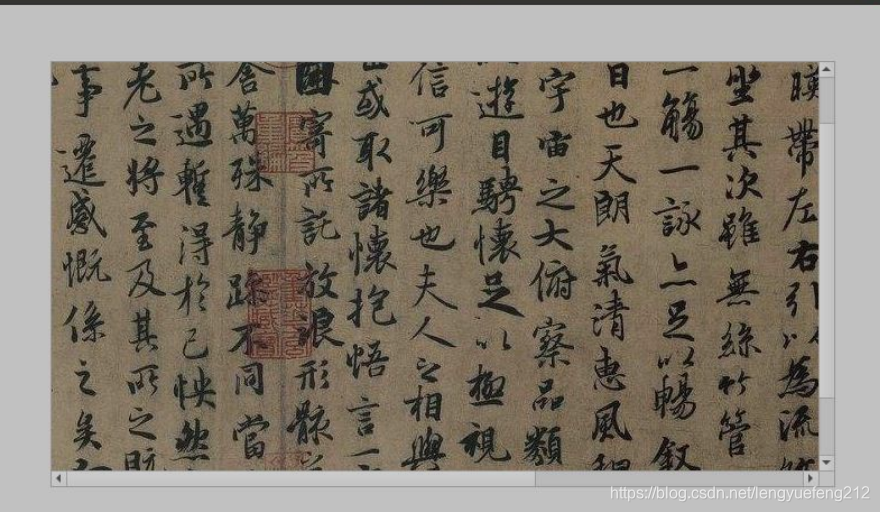 暎帶左右引以為流
坐其次雖無絲竹管
一觴一詠亦足以暢敘
日也天朗氣清惠風和
宇宙之大俯察品類
遊目騁懷足以極視
信可樂也夫人之相與
或取諸懷抱悟言一
因寄所託放浪形骸
舍萬殊靜躁不同當
所遇暫得於己怏然
老之將至及其所之既
事遷感慨係之矣
https://blog.csdn.net/lengyuefeng212